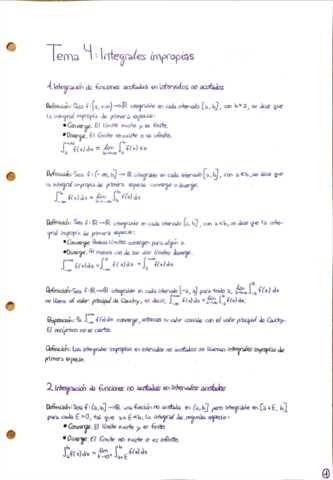 Tema 4: Integrales impropias
1. Integración de funciones acotadas en intervalos no acotados
Definición: Sea f: [a, +∞) → ℝ integrable en cada intervalo [a, b], con b > a, se dice que
la integral impropia de primera especie:
• Converge. El límite existe y es finito.
• Diverge. El límite no existe o es infinito.
∫_a^{+∞} f(x) dx = lim_{b→+∞} ∫_a^b f(x) dx
Definición: Sea f: (-∞, b] → ℝ integrable en cada intervalo [a, b], con a < b, se dice que
la integral impropia de primera especie converge o diverge.
∫_{-∞}^b f(x) dx = lim_{a→-∞} ∫_a^b f(x) dx
Definición: Sea f: ℝ → ℝ integrable en cada intervalo [a, b], con a < b, se dice que la inte-
gral impropia de primera especie:
• Converge. Ambos límites convergen para algún a.
• Diverge. Al menos uno de los dos límites diverge.
∫_{-∞}^{+∞} f(x) dx = ∫_{-∞}^a f(x) dx + ∫_a^{+∞} f(x) dx
Definición: Sea f: ℝ → ℝ integrable en cada intervalo [-a, a] para todo a,
se llama el valor principal de Cauchy, es decir,
Proposición: Si ∫_{-∞}^{+∞} f(x) dx converge, entonces su valor coincide con el valor principal de Cauchy.
El recíproco no es cierto.
Definición: Las integrales impropias en intervalos no acotados se llaman integrales impropias de
primera especie.
2. Integración de funciones no acotadas en intervalos acotados
Definición: Sea f: (a, b] → ℝ una función no acotada en (a, b] pero integrable en [a+ε, b]
para cada ε > 0, tal que a+ε < b. La integral de segunda especie:
• Converge. El límite existe y es finito.
• Diverge. El límite no existe o es infinito.
∫_a^b f(x) dx = lim_{ε→0⁺} ∫_{a+ε}^b f(x) dx